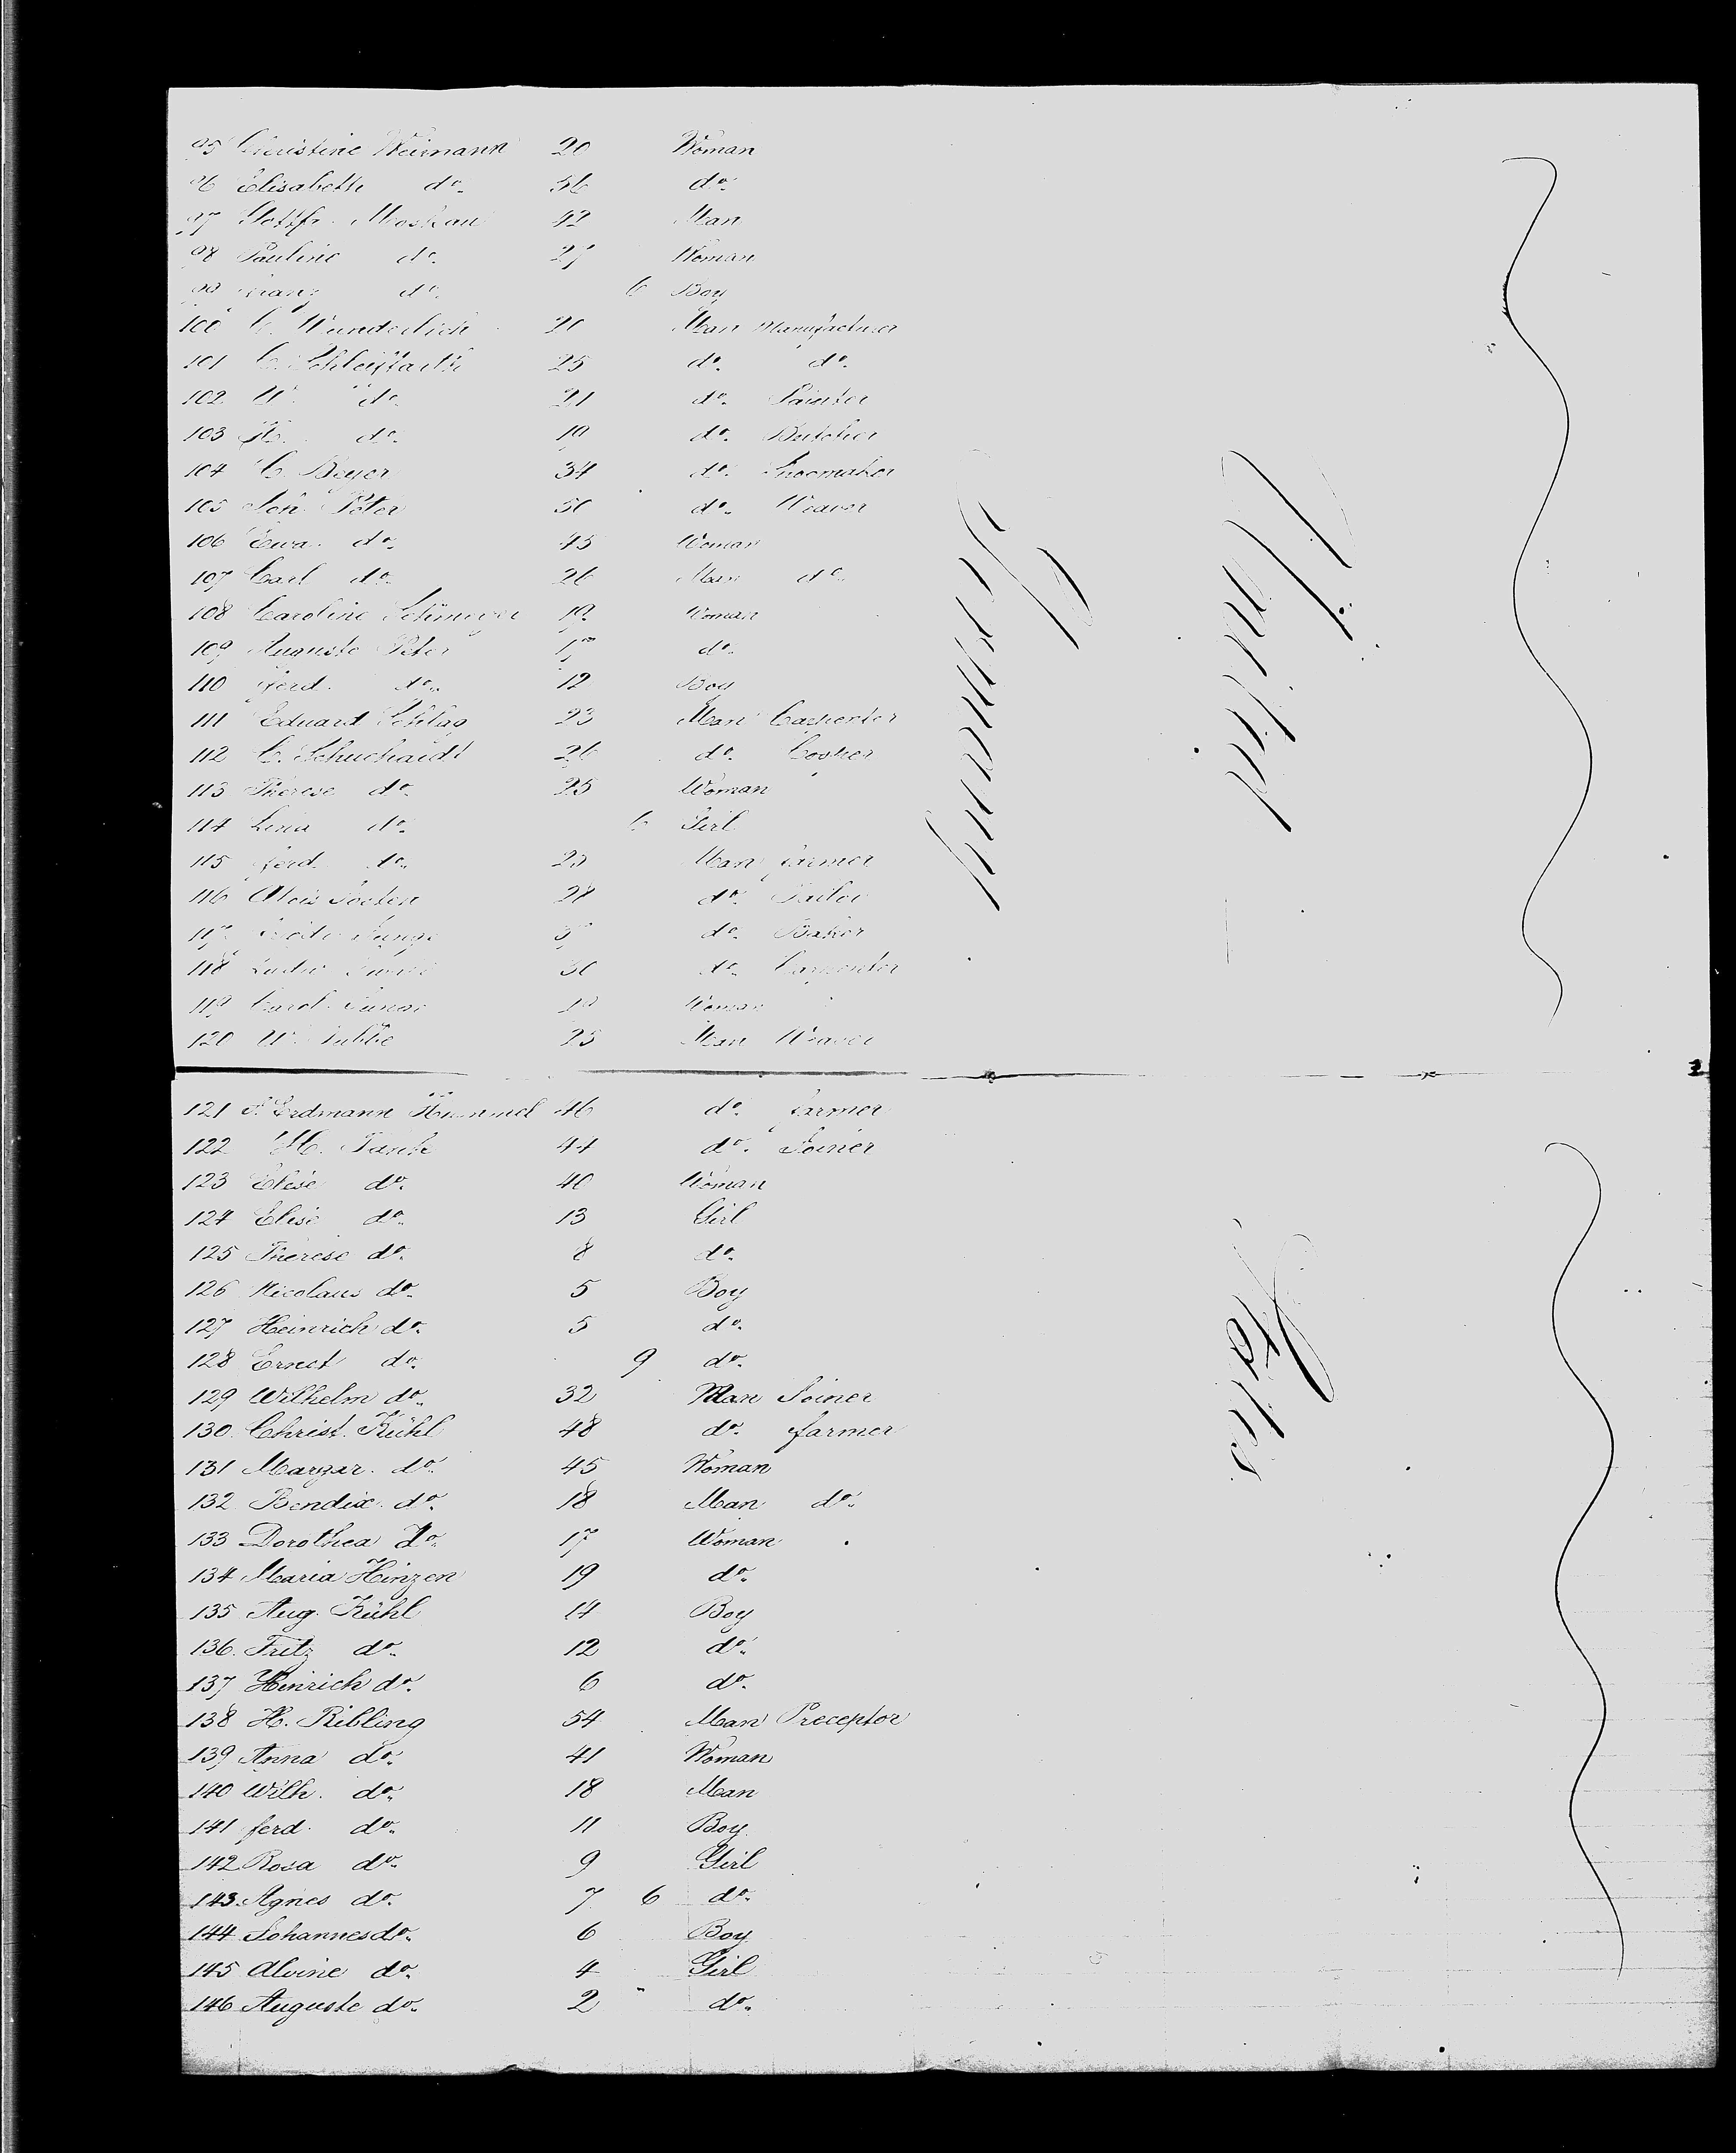 95 Christine Weimann 20 Woman
96 Elisabeth do. 56 do.
97 Gottfr. Moskau 42 Man
98 Pauline do. 27 Woman
99 Franz do. 6 Boy
100 C. Wunderlich 20 Man Manufacturer
101 C. 25 do. do.
102 W. do. 21 do. Painter
103 do. 19 do. Butcher
104 C. Beyer 34 do. Shoemaker
105 Joh. Peter 50 do. Weaver
106 Ewa do. 45 Woman
107 Carl do. 26 Man do.
108 Caroline 19 Woman
109 Auguste Peter 17 do.
110 ferd. do. 12 Boy
111 Eduard Schlag 23 Man Carpenter
112 C. Schuchardt 26 do. Cooper
113 Therese do. 25 Woman
114 Lina do. 6 Girl
115 ferd. do. 23 Man farmer
116 Alois 28 do. Tailor
117 do. Baker
118 30 do. Carpenter
119 Carol. 19 Woman
120 W. 25 Man Weaver
121 Erdmann Hummel 46 do. farmer
122 44 do. Joiner
123 Elise do. 40 Woman
124 Elise do. 13 Girl
125 Therese do. 8 do.
126 Nicolaus do. 5 Boy
127 Heinrich do. 5 do.
128 Ernst do. 9 do.
129 Wilhelm do. 32 Man Joiner
130 Christ. Kühl 48 do. farmer
131 Margar. do. 45 Woman
132 Bendix do. 18 Man do.
133 Dorothea do. 17 Woman
134 Maria Hinzen 19 do.
135 Aug. Kühl 14 Boy
136 Fritz do. 12 do.
137 Heinrich do. 6 do.
138 H. Ribling 54 Man Preceptor
139 Anna do. 41 Woman
140 Wilh. do. 18 Man
141 ferd. do. 11 Boy
142 Rosa do. 9 Girl
143 Agnes do. 7 6 do.
144 Johannes do. 6 Boy
145 Alvine do. 4 Girl
146 Auguste do. 2 " do.
Germany
United
States